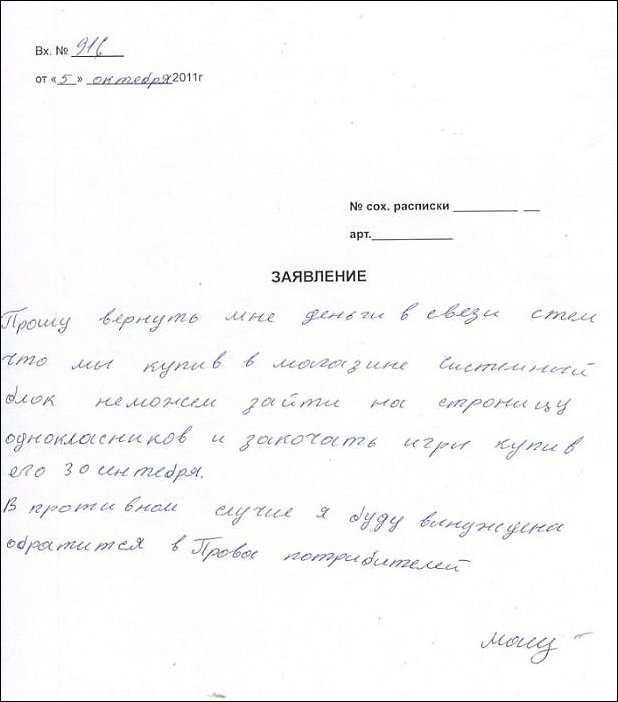 Вх. № 916
от «5» октября 2011г
№ сох. расписки
арт.
ЗАЯВЛЕНИЕ
Прошу вернуть мне деньги в свези стем
что мы купив в магазине систимный
блок неможем зайти на строницу
однокласников и закочать игры купив
его 30 синтебря.
В противном случие я буду вынуждена
обратится в Права потрибителей